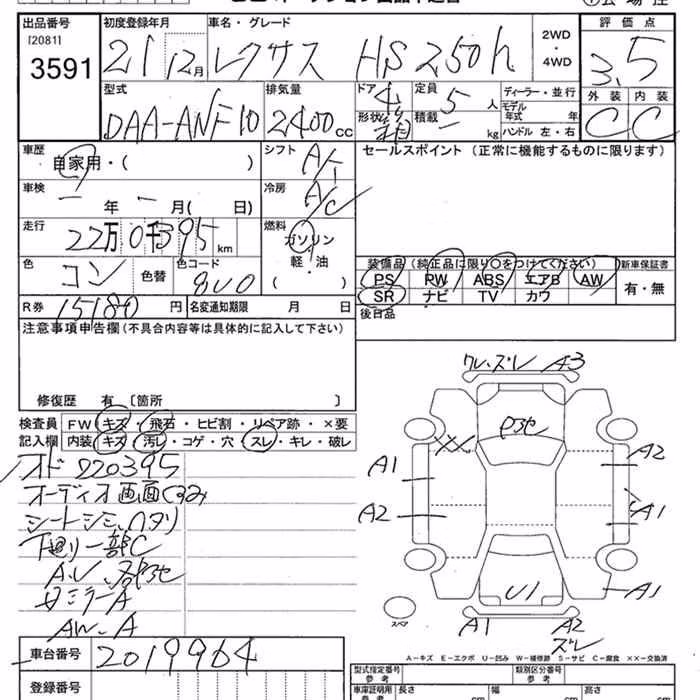 出品番号 初度登録年月 車名・グレード 2WD・4WD 評価点
[2081]
3591 21 12月 レクサス HS250h 3.5
型式 排気量 ドア 4 定員 5人 ディーラー・並行 外装 内装
DAA-ANF10 2400cc 形状 箱 積載 ー kg モデル年式 年 C C
ハンドル 左・右
車歴 自家用・( ) シフト A/T セールスポイント (正常に機能するものに限ります)
車検 ー年 ー月( 日) 冷房 A/C
走行 22万0千395km 燃料 ガソリン・軽・油 ( )
装備品 (純正品に限り○をつけてください) 新車保証書
色 コン 色替 色コード 8U0 PS PW ABS エアB AW 有・無
R券 15180円 名変通知期限 月 日 SR ナビ TV カワ
注意事項申告欄 (不具合内容等は具体的に記入して下さい) 後日品
修復歴 有 〔箇所 〕
検査員記入欄 FW キズ・飛石・ヒビ割・リペア跡・×要
内装 キズ・汚レ・コゲ・穴・スレ・キレ・破レ
オド220395
オーディオ画面くすみ
シートシミ、ヘタリ
下廻り一部C
A.U.
ミラーA
AW.A
ワレ・ズレ A3
××
A1
A2
A2
A1
A1
U1
A1
A2
ズレ
スペア
A-キズ E-エクボ U-凹み W-補修跡 S-サビ C-腐食 ××-交換済
車台番号 2019964
登録番号
型式指定番号 参考 類別区分番号 参考
車庫証明用 参考 長さ cm 幅 cm 高さ cm